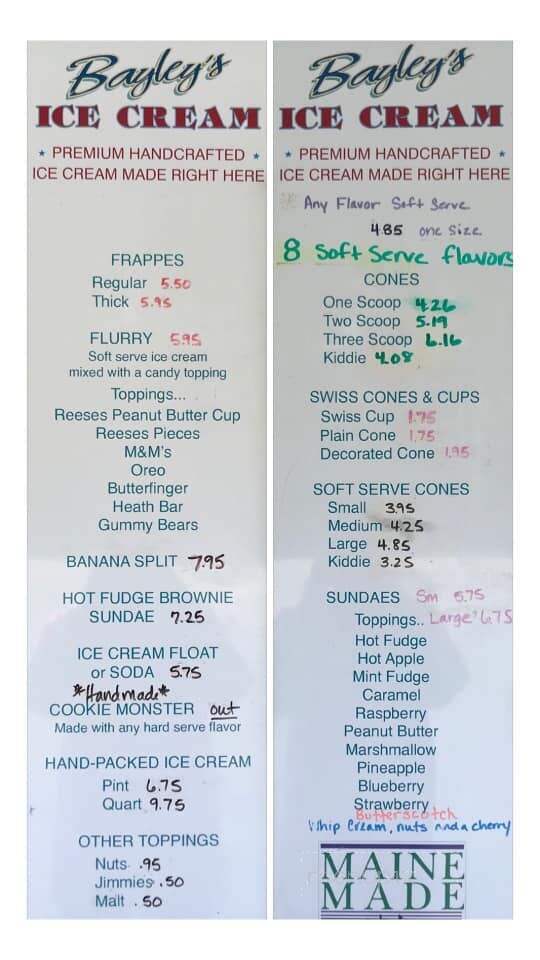 Bayley's
ICE CREAM
★ PREMIUM HANDCRAFTED ★
ICE CREAM MADE RIGHT HERE
FRAPPES
Regular 5.50
Thick 5.95
FLURRY 5.95
Soft serve ice cream
mixed with a candy topping
Toppings...
Reeses Peanut Butter Cup
Reeses Pieces
M&M's
Oreo
Butterfinger
Heath Bar
Gummy Bears
BANANA SPLIT 7.95
HOT FUDGE BROWNIE
SUNDAE 7.25
ICE CREAM FLOAT
or SODA 5.75
*Handmade*
COOKIE MONSTER out
Made with any hard serve flavor
HAND-PACKED ICE CREAM
Pint 6.75
Quart 9.75
OTHER TOPPINGS
Nuts .95
Jimmies .50
Malt .50
Bayley's
ICE CREAM
★ PREMIUM HANDCRAFTED ★
ICE CREAM MADE RIGHT HERE
Any Flavor Soft Serve
4.85 one Size
8 Soft Serve flavors
CONES
One Scoop 4.26
Two Scoop 5.19
Three Scoop 6.16
Kiddie 4.08
SWISS CONES & CUPS
Swiss Cup 1.75
Plain Cone 1.75
Decorated Cone 1.95
SOFT SERVE CONES
Small 3.95
Medium 4.25
Large 4.85
Kiddie 3.25
SUNDAES Sm 5.75
Toppings.. Large 6.75
Hot Fudge
Hot Apple
Mint Fudge
Caramel
Raspberry
Peanut Butter
Marshmallow
Pineapple
Blueberry
Strawberry
Butterscotch
Whip Cream, nuts and a cherry
MAINE
MADE